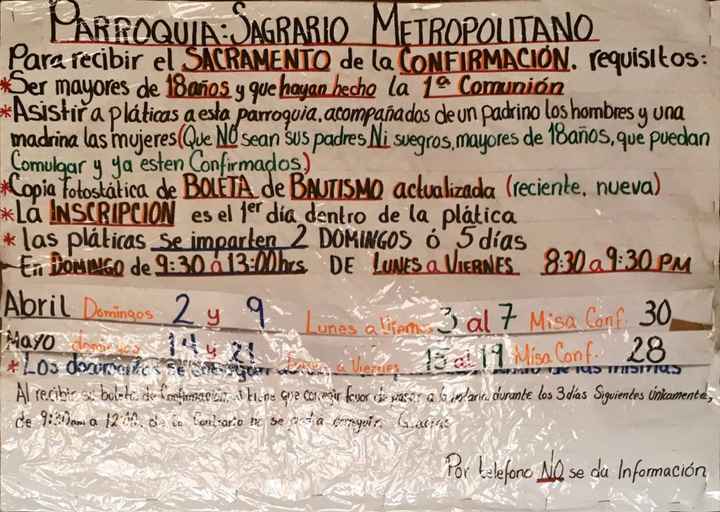 PARROQUIA: SAGRARIO METROPOLITANO
Para recibir el SACRAMENTO de la CONFIRMACIÓN. requisitos:
*Ser mayores de 18 años y que hayan hecho la 1ª Comunión
*Asistir a pláticas a esta parroquia, acompañados de un padrino los hombres y una
madrina las mujeres (Que NO sean sus padres Ni suegros, mayores de 18 años, que puedan
Comulgar y ya esten Confirmados)
*Copia fotostática de BOLETA de BAUTISMO actualizada (reciente, nueva)
*LA INSCRIPCIÓN es el 1er día dentro de la plática
* las pláticas se imparten 2 DOMINGOS ó 5 días
- En DOMINGO de 9:30 a 13:00 hrs DE LUNES a VIERNES 8:30 a 9:30 PM
Abril Domingos 2 y 9 Lunes a Viernes 3 al 7 Misa Conf. 30
Mayo domingos 14 y 21 Lunes a Viernes 15 al 19 Misa Conf. 28
* Los documentos se entregan de las mismas
Al recibir su boleta de Confirmación, si tiene que corregir favor de pasar a la notaria durante los 3 días Siguientes únicamente,
de 9:30 am a 12:00, de lo Contrario no se podrá corregir. Gracias
Por telefono NO se da Información